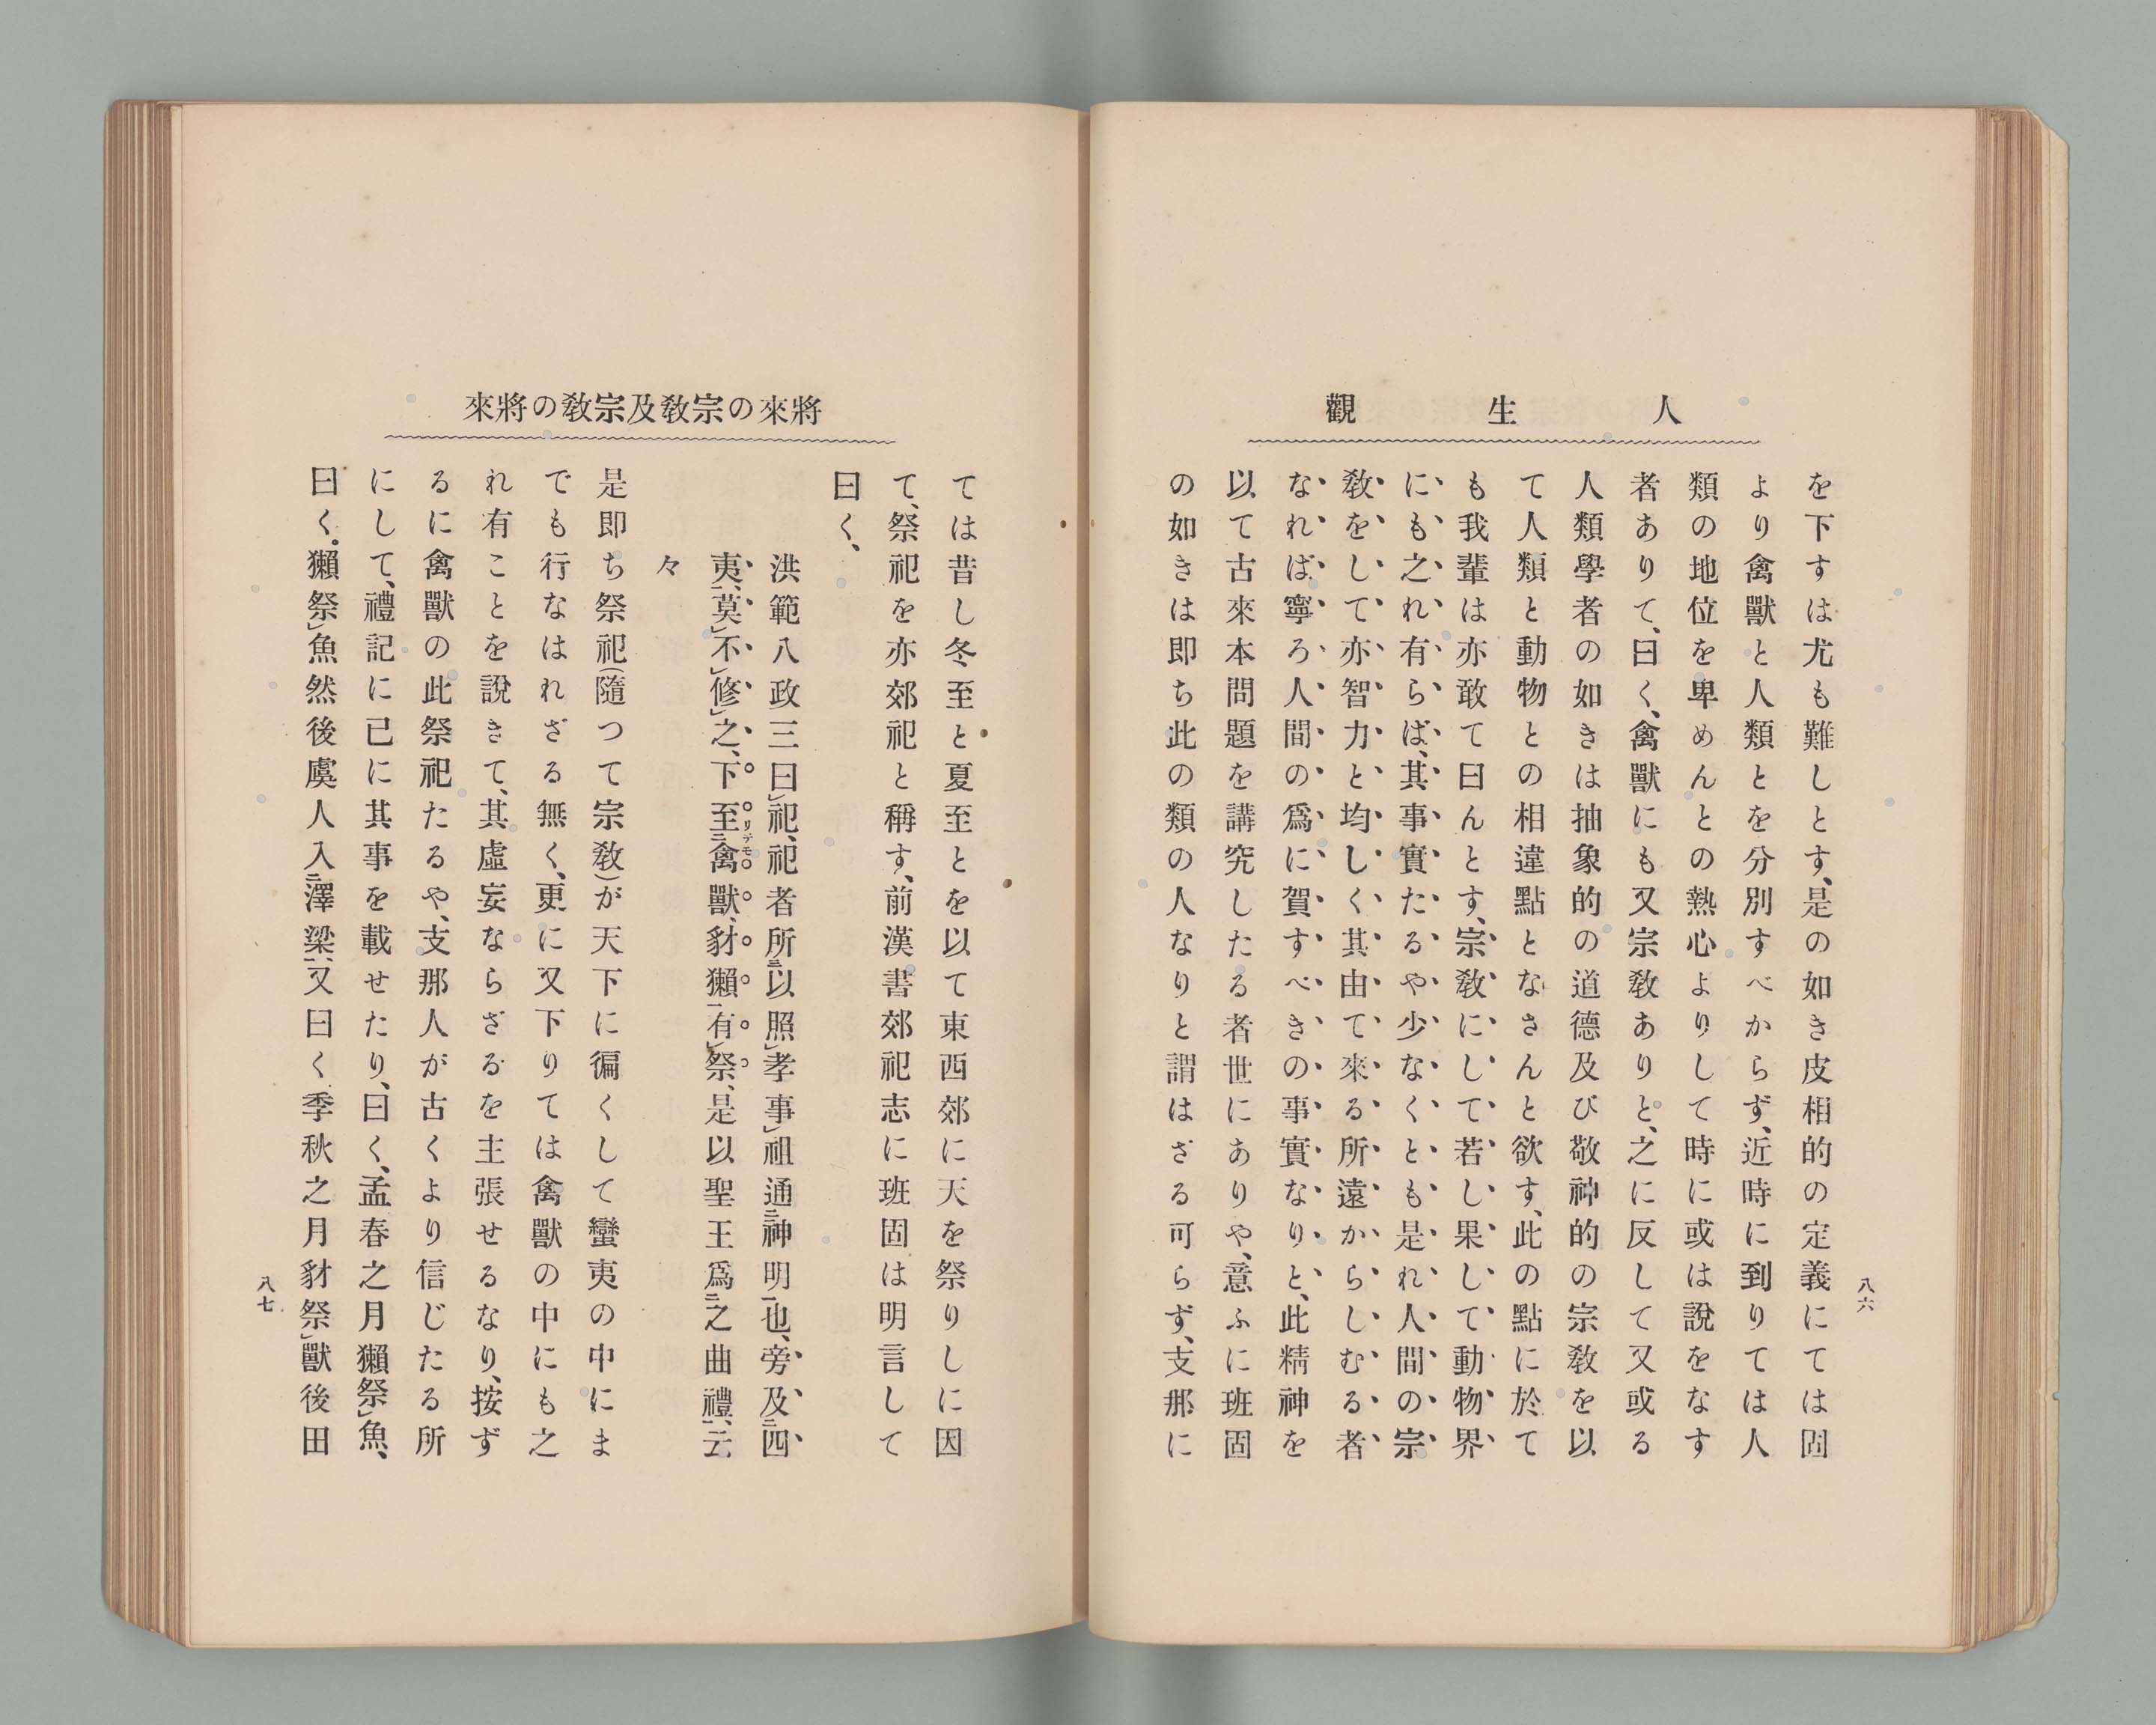 人生觀
八六
を下すは尤も難しとす、是の如き皮相的の定義にては固
より禽獸と人類とを分別すべからず、近時に到りては人
類の地位を卑めんとの熱心よりして時に或は說をなす
者ありて、曰く、禽獸にも又宗敎ありと、之に反して又或る
人類學者の如きは抽象的の道德及び敬神的の宗敎を以
て人類と動物との相違點となさんと欲す、此の點に於て
も我輩は亦敢て曰んとす、宗敎にして若し果して動物界
にも之れ有らば、其事實たるや少なくとも是れ人間の宗
敎をして亦智力と均しく其由て來る所遠からしむる者
なれば寧ろ人間の爲に賀すべきの事實なりと、此精神を
以て古來本問題を講究したる者世にありや、意ふに班固
の如きは即ち此の類の人なりと謂はざる可らず、支那に
將來の宗敎及宗敎の將來
ては昔し冬至と夏至とを以て東西郊に天を祭りしに因
て、祭祀を亦郊祀と稱す、前漢書郊祀志に班固は明言して
曰く、
洪範八政三曰㆑祀、祀者所㆔以照㆑孝事㆑祖通㆓神明㆒也、旁及㆓四
夷㆒、莫㆑不㆑修㆑之、下至㆓リテモ禽獸、豺獺㆒有㆑祭、是以聖王爲㆓之曲禮㆒、云
々
是即ち祭祀(隨つて宗敎)が天下に徧くして蠻夷の中にま
でも行なはれざる無く、更に又下りては禽獸の中にも之
れ有ことを說きて、其虛妄ならざるを主張せるなり、按ず
るに禽獸の此祭祀たるや、支那人が古くより信じたる所
にして、禮記に已に其事を載せたり、曰く、孟春之月獺祭㆑魚、
曰く。獺祭㆑魚然後虞人入㆓澤梁㆒、又曰く季秋之月豺祭㆑獸後田
八七